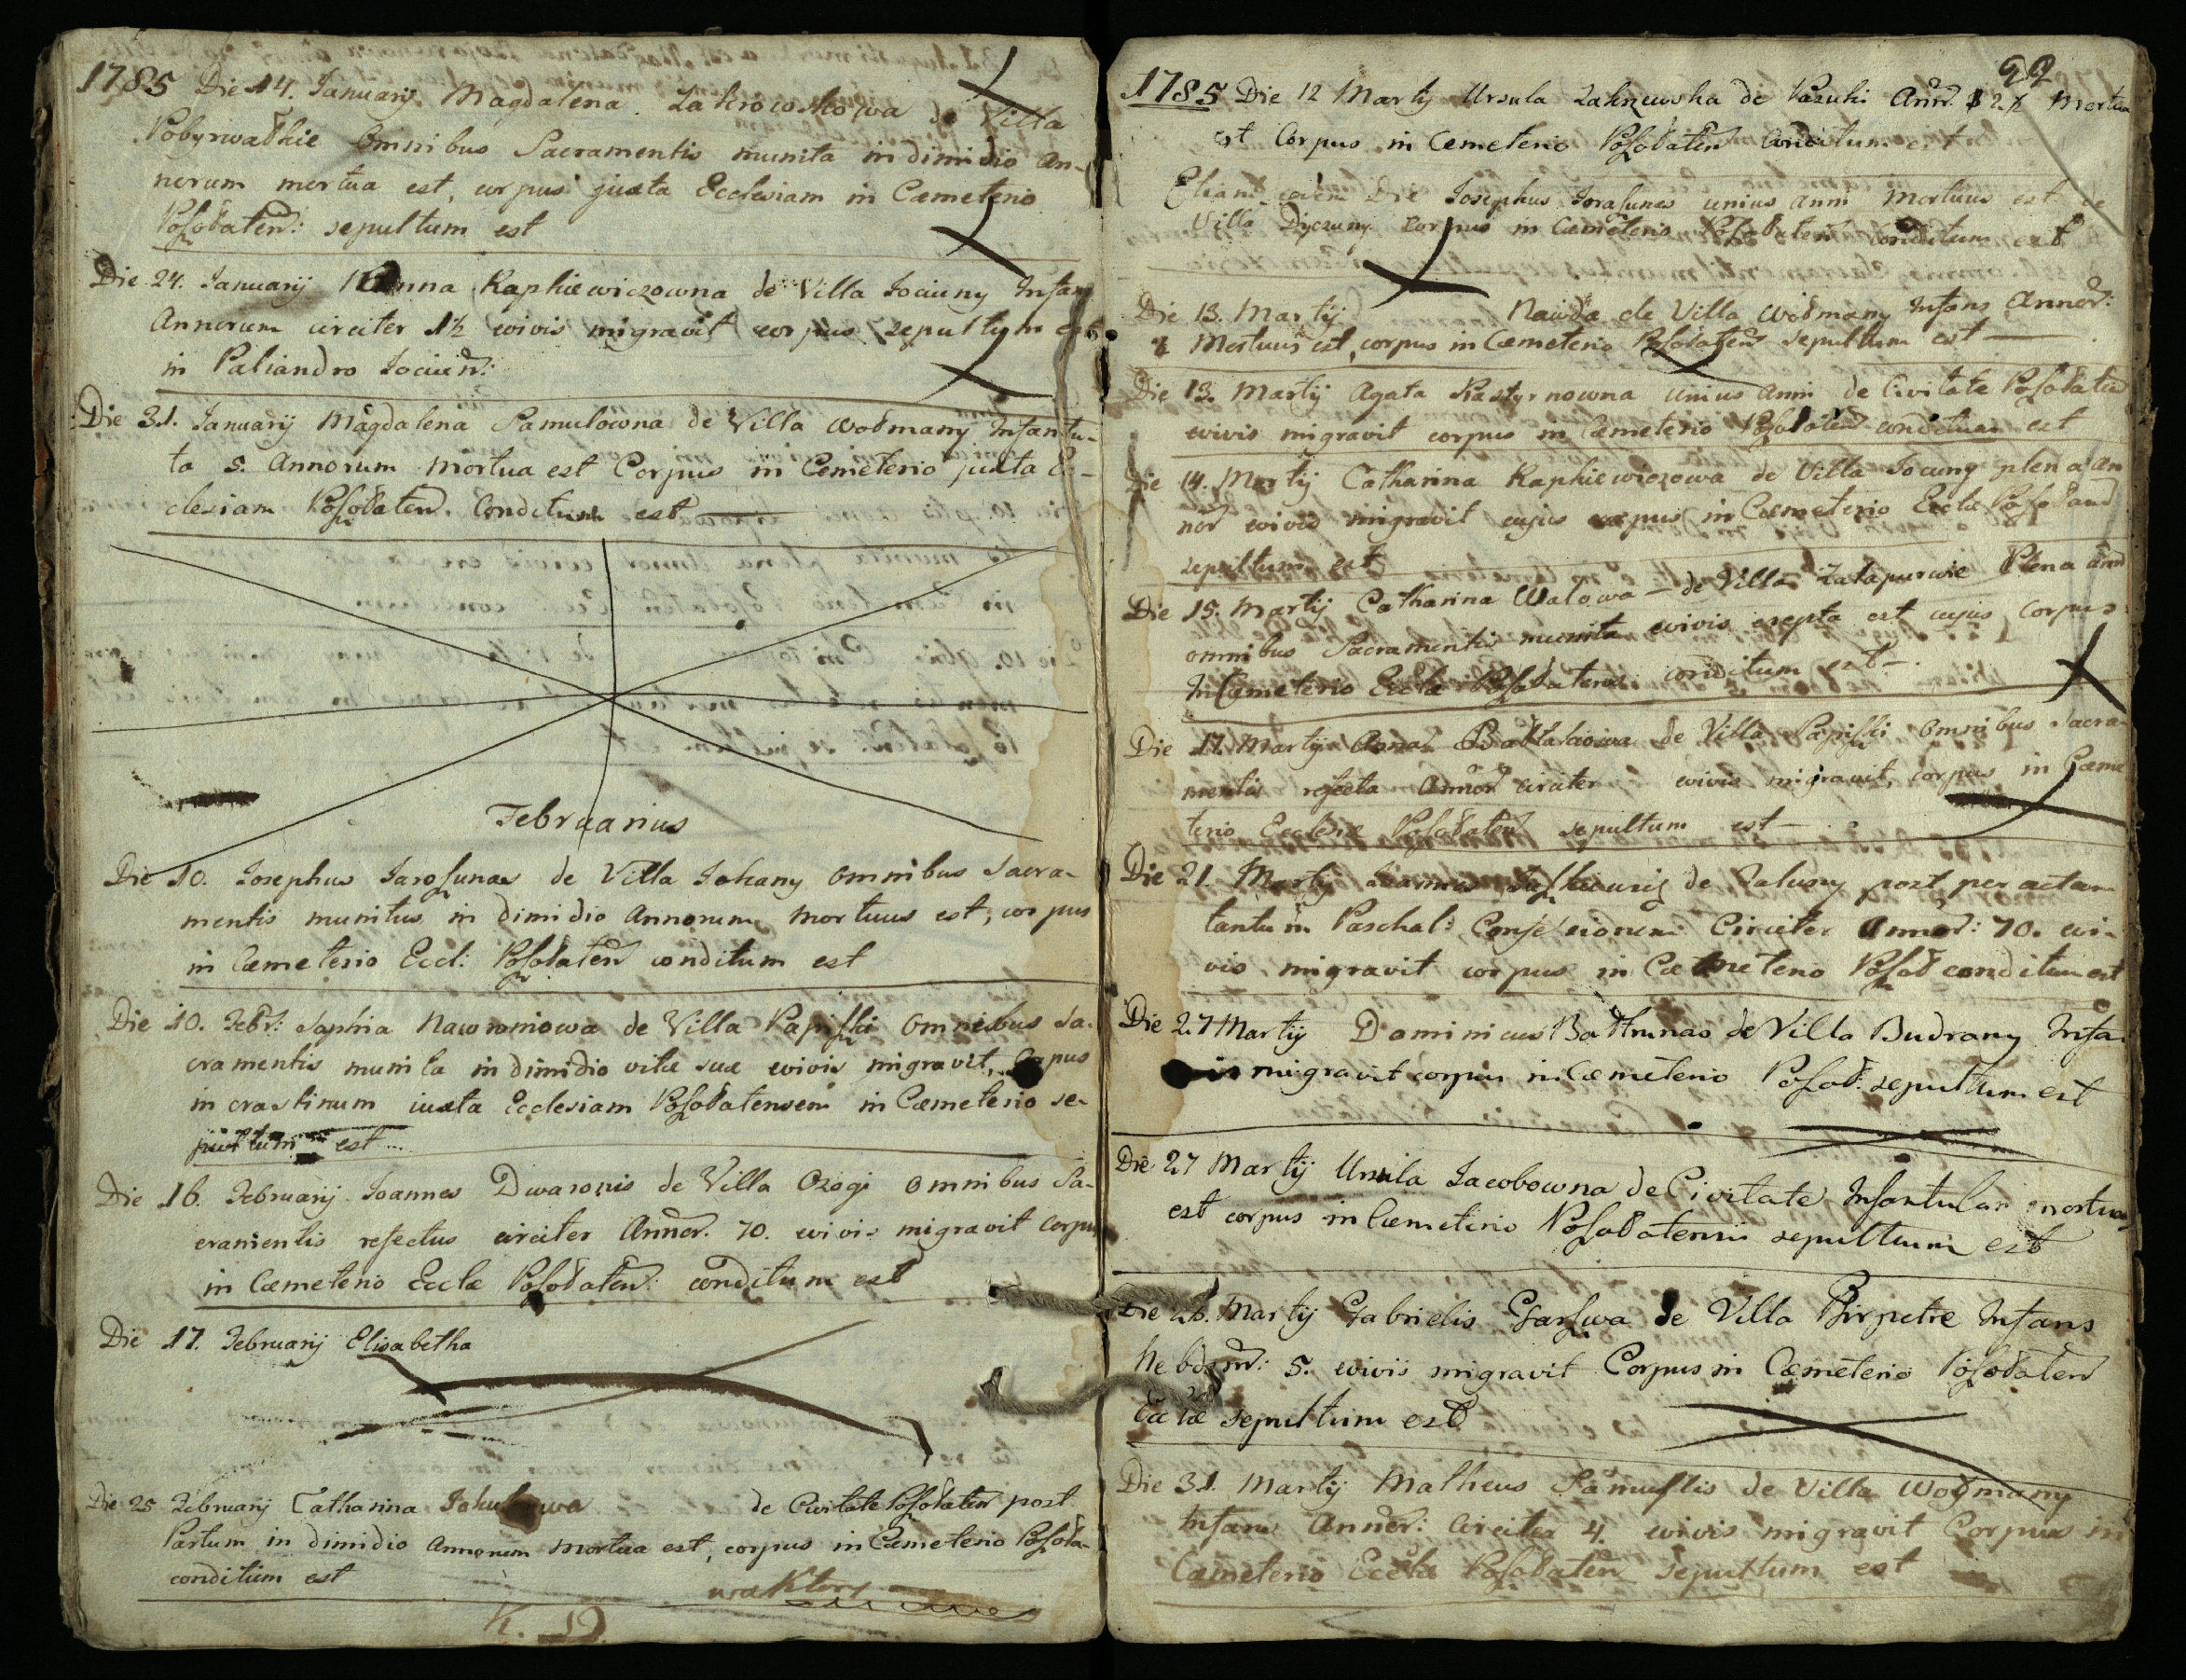 1785 Die 14. Januarij Magdalena Zakrowskowa de Villa
Pobyrwałkie Omnibus Sacramentis munita in dimidio an-
norum mortua est, corpus juxta Ecclesiam in Cæmeterio
Posołateñ: sepultum est
Die 24. Januarij Anna Raphiewiczowna de Villa Jociuny Infans
Annorum circiter 1½ evivis migravit corpus sepultum est
in Paliandro Jociuñ:
Die 31. Januarij Magdalena Samulowna de Villa Wodmany Infantu-
la 5. Annorum mortua est Corpus in Cemeterio juxta Ec-
clesiam Posołateñ. Conditum est
Februarius
Die 10. Josephus Jarosunas de Villa Johany omnibus Sacra-
mentis munitus in dimidio Annorum mortuus est, corpus
in Cæmeterio Eccl: Posołateñ conditum est
Die 10. Febr: Sophia Nawroniowa de Villa Papiszki omnibus Sa-
cramentis munita in dimidio vitæ suæ evivis migravit, Corpus
in crastinum iuxta Ecclesiam Posołatensem in Cæmeterio se-
pultum est
Die 16. Februarij Joannes Dwaronis de Villa Ozogi omnibus Sa-
cramentis refectus circiter Annor. 70. evivis migravit Corpus
in Cæmeterio Eccłæ Posołateñ: conditum est
Die 17. Februarij Elisabetha
Die 25 Februarij Catharina de Civitate Posołateñ post
Partum in dimidio Annorum mortua est, corpus in Cæmeterio Posoła-
conditum est
K. 19.
22
1785 Die 12 Martij Ursula de Mortua
est Corpus in Cemeterio Posołateñ Conditum est
Etiam eodem Die Josephus unius anni Mortuus est de
Villa Dyczuny Corpus in Cæmeterio Posołateñ Conditum est
Die 13. Martij Nawda de Villa Wodmany Infans Annor:
Mortuus est, corpus in Cæmeterio Posołateñ Sepultum est
Die 13. Martij Agata Rastyrnowna unius Anni de Civitate Posołateñ
evivis migravit corpus in Cæmeterio Posołateñ conditum est
Die 14. Martij Catharina Raphiewiczowa de Villa Jociuny plena an
nor evivis migravit cujus corpus in Cæmeterio Eccłæ
sepultum est
Die 15. Martij Catharina Walowa de Villa Załapurwie Plena
omnibus Sacramentis munita evivis erepta est cujus Corpus
In Cæmeterio Eccłæ Posołatensi conditum est
Die 17. Martij Anna de Villa Papiszki Omnibus Sacra-
mentis refecta Annor circiter evivis migravit, corpus in Cæme
terio Ecclesiæ Posołateñ sepultum est
Die 21. Martij de post peractam
tantum Paschal: Confessionem Circiter Annor: 70. evi-
vis migravit corpus in Cæmeterio Posoł conditum est
Die 27 Martij Dominicus de Villa Budrany Infa-
migravit corpus in Cæmeterio Posoł: sepultum est
Die 27 Martij Ursula Jacobowna de Civitate Infantula mortua
est corpus in Cæmeterio Posołatensi sepultum est
Die 26. Martij Gabrielis de Villa Infans
hebdom: 5. evivis migravit Corpus in Cæmeterio Posołateñ
Eccłæ sepultum est
Die 31. Martij Matheus de Villa Wodmany
Infans Annor: Circiter 4. evivis migravit Corpus in
Cæmeterio Eccłæ Posołateñ Sepultum est